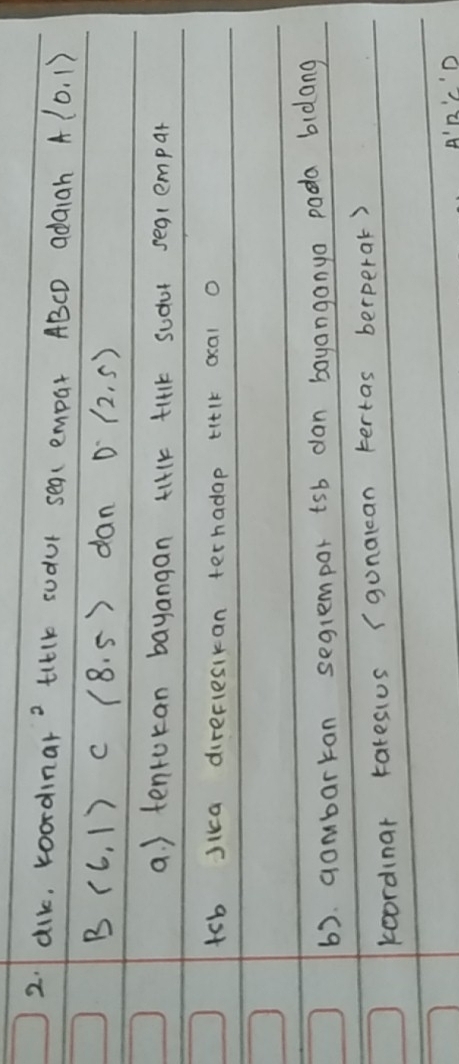 2. dik, koordinat² titik sudut segi empat ABCD adalah A (0,1)
B (6,1) C (8,5) dan D (2,5)
a.) tentukan bayangan titik titik sudut segi empat
tsb jika direflesikan terhadap titik asal O
b). gambarkan segiempat tsb dan bayanganya pada bidang
koordinat katesius (gunakan kertas berpetak)
A'B'C'D